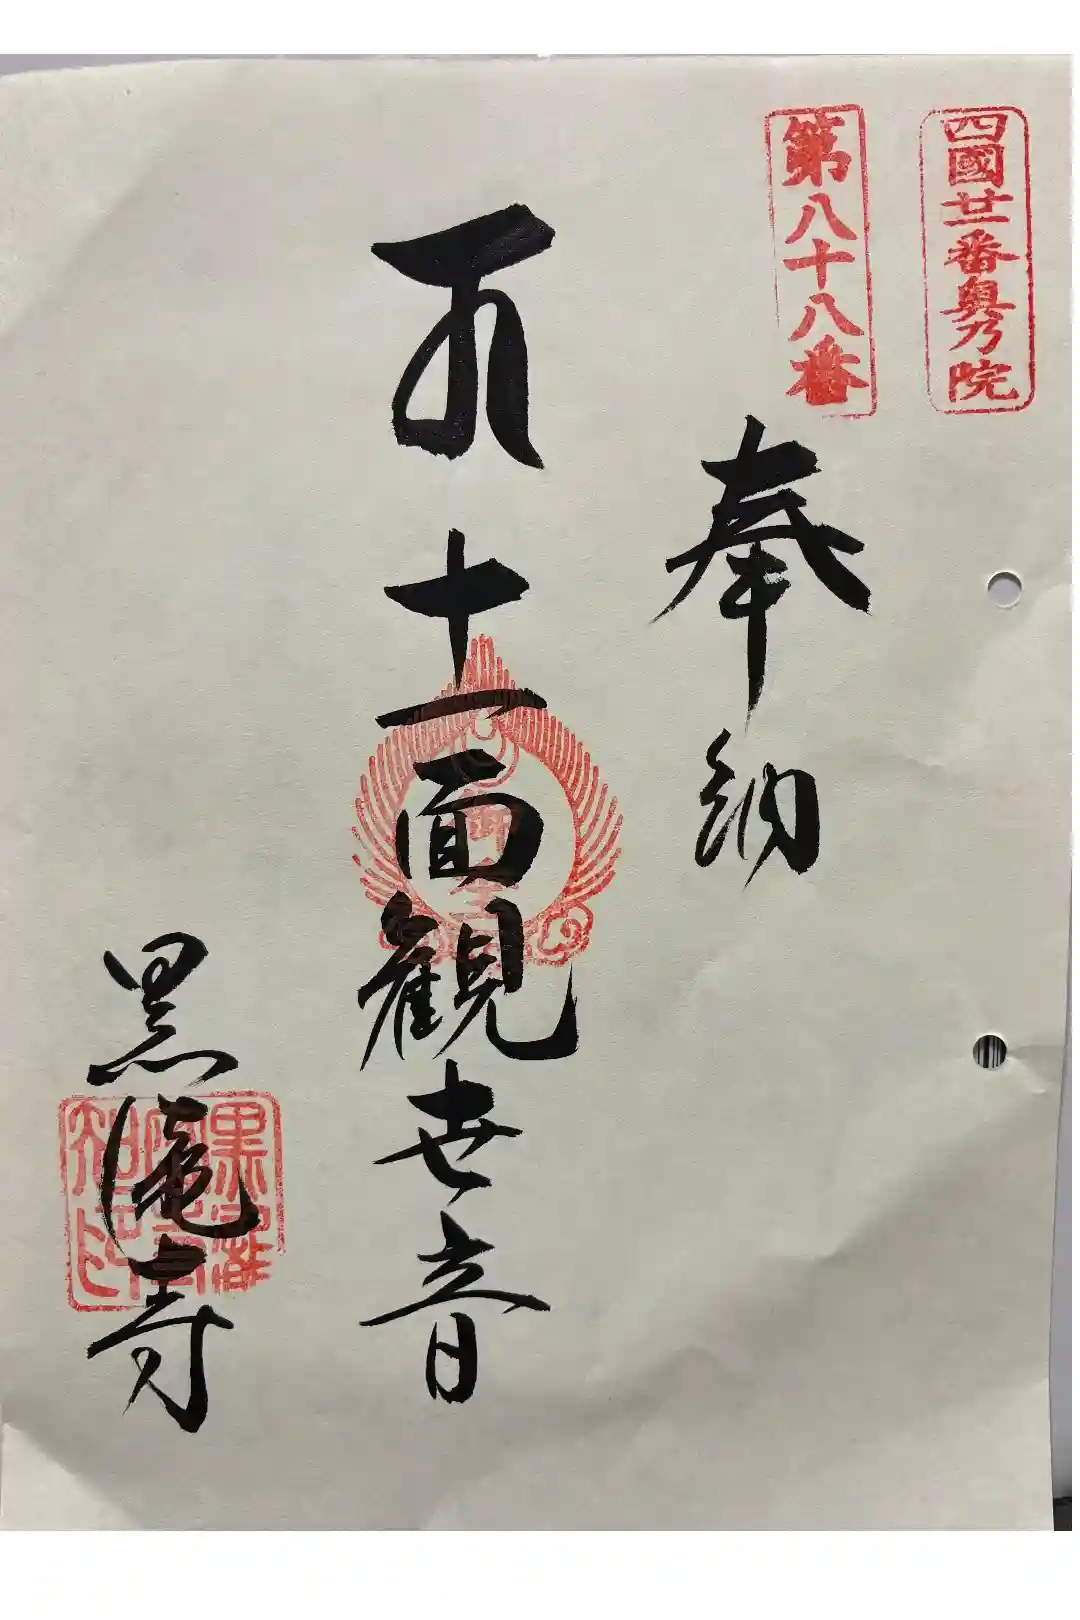 四國廿番奥乃院
第八十八番
奉納
十一面観世音
黒滝寺